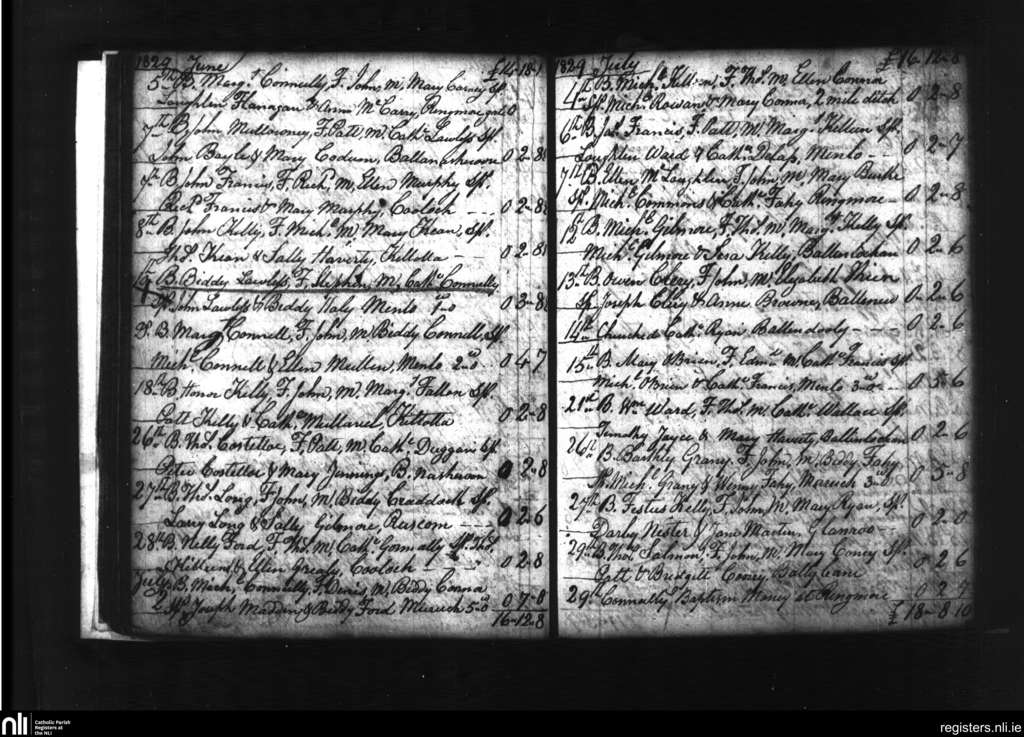 1829 June £14 18 1
5th B. Margt Connelly, F. John, M. Mary Carney Sps.
Loughlin Flanagan & Anne McCarry, Ringmore
7th B. John Mullowney, F. Patt, M. Cathe Lawless Sps.
John Bayle & Mary Codum, 0 2 8
B. John Francis, F. Richd, M. Ellen Murphy Sps.
Richd Francis & Mary Murphy, Cooloch 0 2 8
8th B. John Kelly, F. Michl M. Mary Kean, Sps.
Thos. Kean & Sally Haverty, Killotta 0 2 8
B. Biddy Lawless, F. Stephen, M. Cathe Connelly
Sps. John Lawless & Biddy Haly Menlo 0 3 8
Do B. Margt Connell, F. John, M. Biddy Connell, Sps.
Michl. Connell & Ellen Mullen, Menlo 0 4 7
18th B. Honor Kelly, F. John, M. Margt Fallon Sps.
Patt Kelly & Cathe Killotta 0 2 8
26th B. Thos. Costelloe, F. Patt, M. Cathe Duggan Sps.
Peter Costelloe & Mary Jennings, B. 0 2 8
27th B. Thos. Long, F. John, M. Biddy Craddock Sps.
Larry Long & Sally Gilmore, Rascom 0 2 6
28th B. Nelly Ford, F. Thos. M. Cathe Connally Sps. Thos.
& Ellen Grealy Cooloch 0 2 8
July B. Michl. Connelly, F. Denis, M. Biddy Conna
2 Sps. Joseph Madden & Biddy Ford 0 7 8
16 12 8
1829 July £16 12 8
B. Michl F. Thos. M. Ellen Conna
4th Sps. Michl Rowan & Mary Conna, 2 mile ditch 0 2 8
6th B. Jas. Francis, F. Patt, M. Margt Killeen Sps.
Loughlin Ward & Cathe Delap, Menlo 0 2 7
7th B. Ellen McLaughlin, F. John, M. Mary Burke
Sps. Michl Commons & Cath. Fahy Ringmore 0 2 8
12th B. Michl Gilmore, F. Thos. M. Margt Kelly Sps.
Michl Gilmore & Kelly, Ballinlochan 0 2 6
13th B. Owen Cleery, F. John, M. Elizabeth
Sps. Joseph Clery & Anne Browne, 0 2 6
14th Churched Cathe Ryan, 0 2 6
15th B. Mary O'Brien, F. Edmd M. Cathe Francis Sps.
Michl O'Brien & Cathe Francis, Menlo 0 5 6
21st B. Wm Ward, F. Thos. M. Cathe Wallace Sps.
Timothy Joyce & Mary Haverty, Ballinlochan 0 2 6
26th B. Bartley Grany, F. John, M. Biddy Fahy
Sps. Michl. Grany & Winny Fahy, 0 5 8
27th B. Festus Kelly, F. John, M. Mary Ryan, Sps.
Darby Nester & Jane Martin, Glanroo 0 2 0
29th B. Thos. Salmon, F. John, M. Mary Coney Sps.
Patt & Bridgett Cooney, 0 2 6
29th Connally Baptism Money at Ringmore 0 2 7
£ 18 8 10
nli
Catholic Parish
Registers at
the NLI
registers.nli.ie